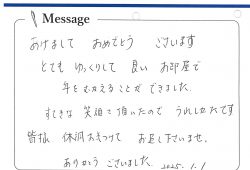 Message
あけまして おめでとう ございます
とても ゆっくりして 良い お部屋で
年をむかえることが できました。
すてきな 笑顔で頂いたので うれしかったです
皆様 体調お気をつけて お過し下さいませ。
ありがとう ございました。
2025.1.1